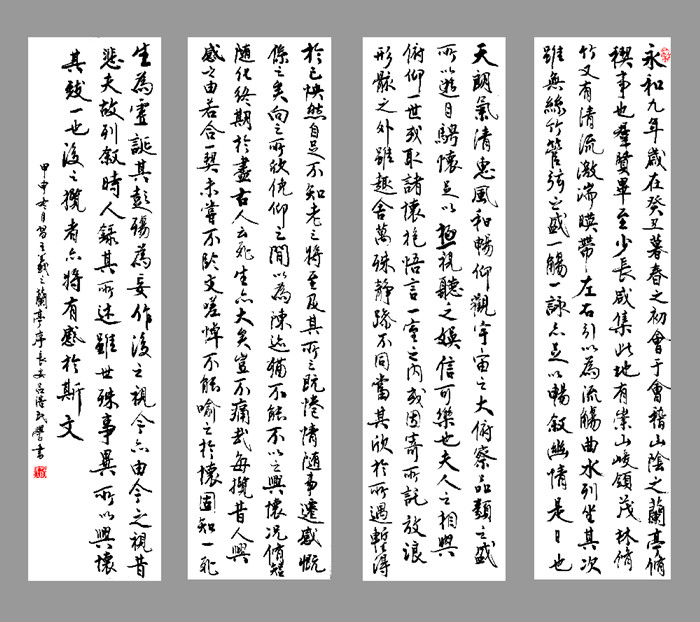 永和九年歲在癸丑暮春之初會于會稽山陰之蘭亭脩
禊事也羣賢畢至少長咸集此地有崇山峻領茂林脩
竹又有清流激湍暎帶左右引以為流觴曲水列坐其次
雖無絲竹管弦之盛一觴一詠亦足以暢叙幽情是日也
天朗氣清惠風和暢仰觀宇宙之大俯察品類之盛
所以遊目騁懷足以極視聽之娛信可樂也夫人之相與
俯仰一世或取諸懷抱悟言一室之內或因寄所託放浪
形骸之外雖趣舍萬殊靜躁不同當其欣於所遇暫得
於己怏然自足不知老之將至及其所之既惓情隨事遷感慨
係之矣向之所欣俛仰之間以為陳迹猶不能不以之興懷況脩短
隨化終期於盡古人云死生亦大矣豈不痛哉每攬昔人興
感之由若合一契未嘗不臨文嗟悼不能喻之於懷固知一死
生為虛誕其彭殤為妄作後之視今亦由今之視昔
悲夫故列叙時人錄其所述雖世殊事異所以興懷
其致一也後之攬者亦將有感於斯文
甲申冬月習王羲之蘭亭序長安呂民學書